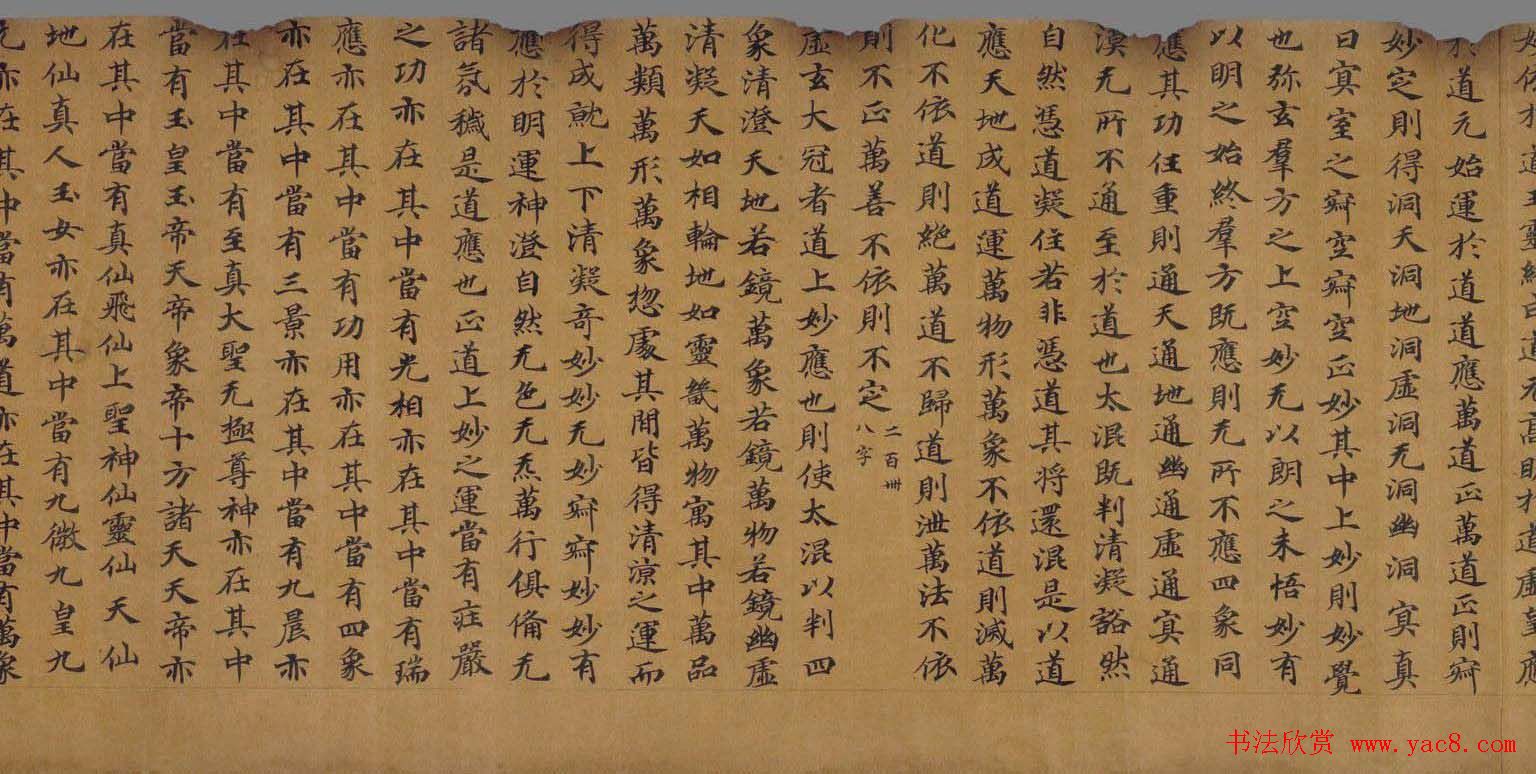 於道元始運於道道應萬道正萬道正則寂
妙定則得洞天洞地洞虛洞无洞幽洞冥真
曰冥室之寂空寂空正妙其中上妙則妙覺
也弥玄羣方之上空妙无以朗之未悟妙有
以明之始終羣方既應則无所不應四象同
應其功任重則通天通地通幽通虛通冥通
漠无所不通至於道也太混既判清凝豁然
自然憑道凝住若非憑道其將還混是以道
應天地成道運萬物形萬象不依道則滅萬
化不依道則絕萬道不歸道則泄萬法不依
則不正萬善不依則不定二百卌八字
虛玄大冠者道上妙應也則使太混以判四
象清澄天地若鏡萬象若鏡萬物若鏡幽虛
清凝天如相輪地如靈萬物寓其中萬品
萬類萬形萬象揔處其間皆得清涼之運而
得成就上下清凝奇妙妙无妙寂寂妙妙有
應於明運神澄自然无色无炁萬行俱備无
諸氛穢是道應也正道上妙之運當有莊嚴
之功亦在其中當有光相亦在其中當有瑞
應亦在其中當有功用亦在其中當有四象
亦在其中當有三景亦在其中當有九晨亦
在其中當有至真大聖无極尊神亦在其中
當有玉皇玉帝天帝象帝十方諸天天帝亦
在其中當有真仙飛仙上聖神仙靈仙天仙
地仙真人玉女亦在其中當有九微九皇九
亦在其中當有萬道亦在其中當有萬象
书法欣赏 www.yac8.com